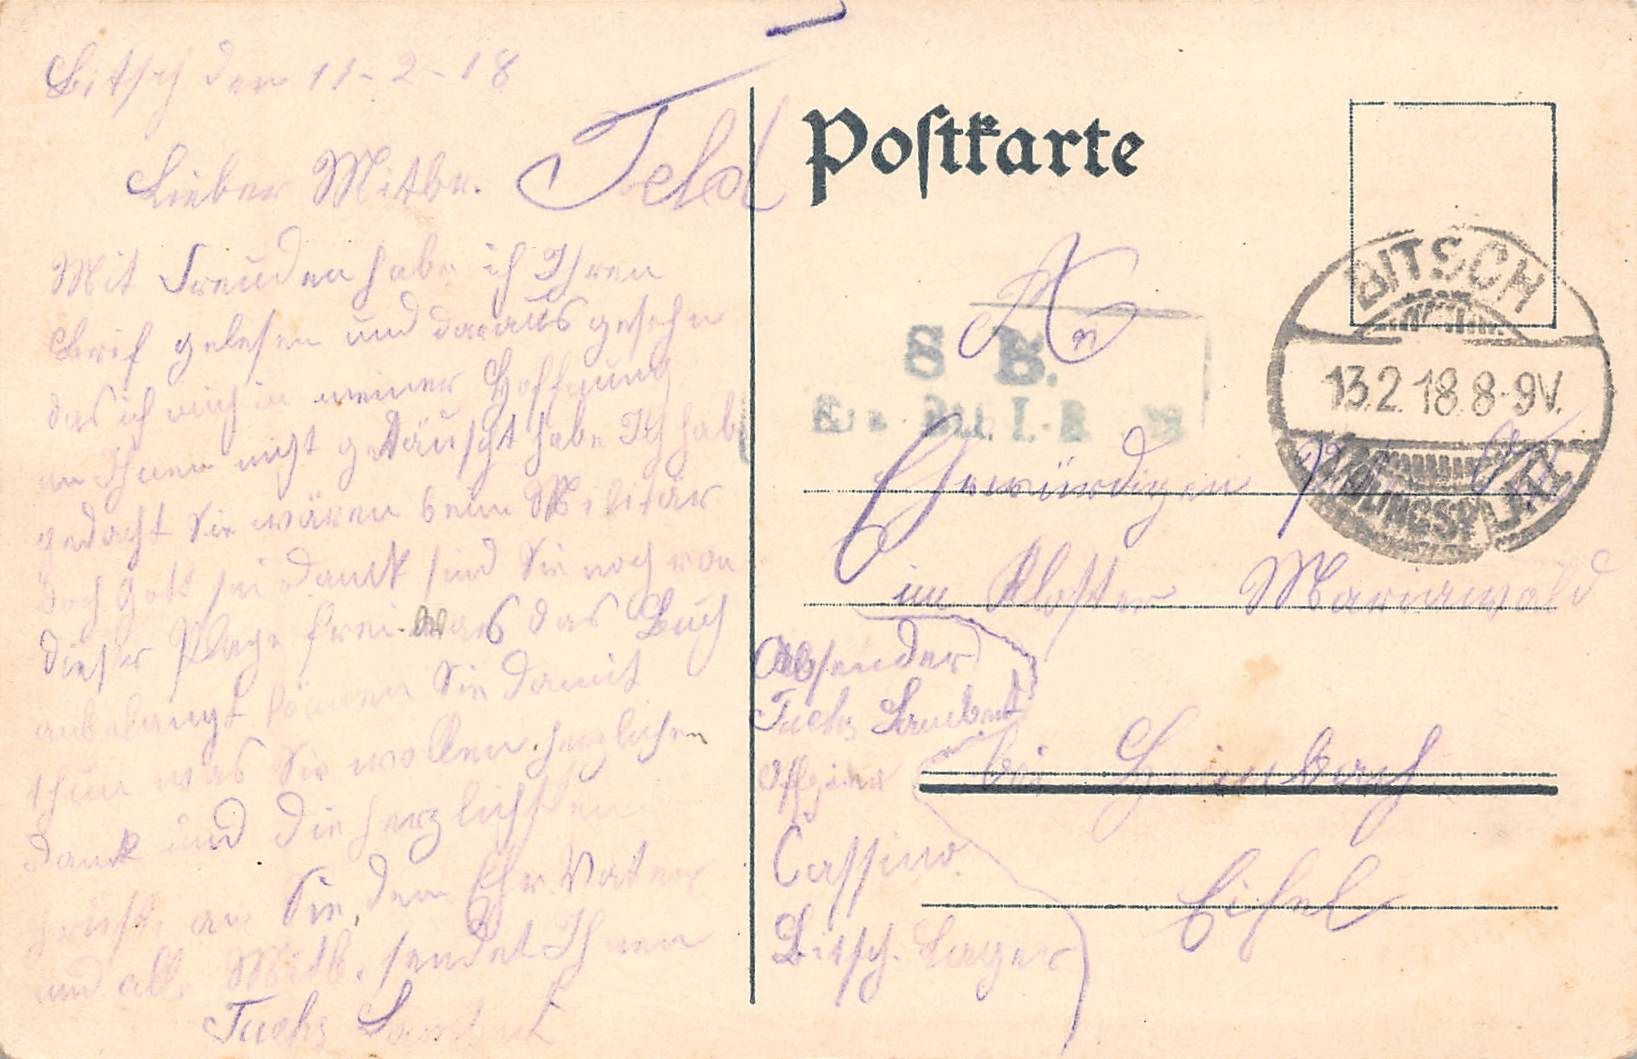 Bitsch den 11-2-18
Lieber Mitbr.
Mit Freuden habe ich Ihren
Brif gelesen und daraus gesehn
das ich mich in meiner Hoffnung
an Ihnen nicht getäuscht habe Ich hab
gedacht Sie wären beim Militär
doch Gott sei dank sind Sie noch von
dieser Plage frei. Was das Buch
anbelangt können Sie damit
thun was Sie wollen. herzlichen
dank und die herzlichsten
an Sie, dem Ehr. Vater
und alle Mitb. sendet Ihnen
Fuchs Lambert
Feld
Postkarte
An
S. B.
BITSCH
13.2.18.8-9V.
Ehrwürdigen
im Kloster Mariawald
bei Heimbach
Eifel
Absender
Fuchs Lambert
Offizier
Cassino
Bitsch. Lager